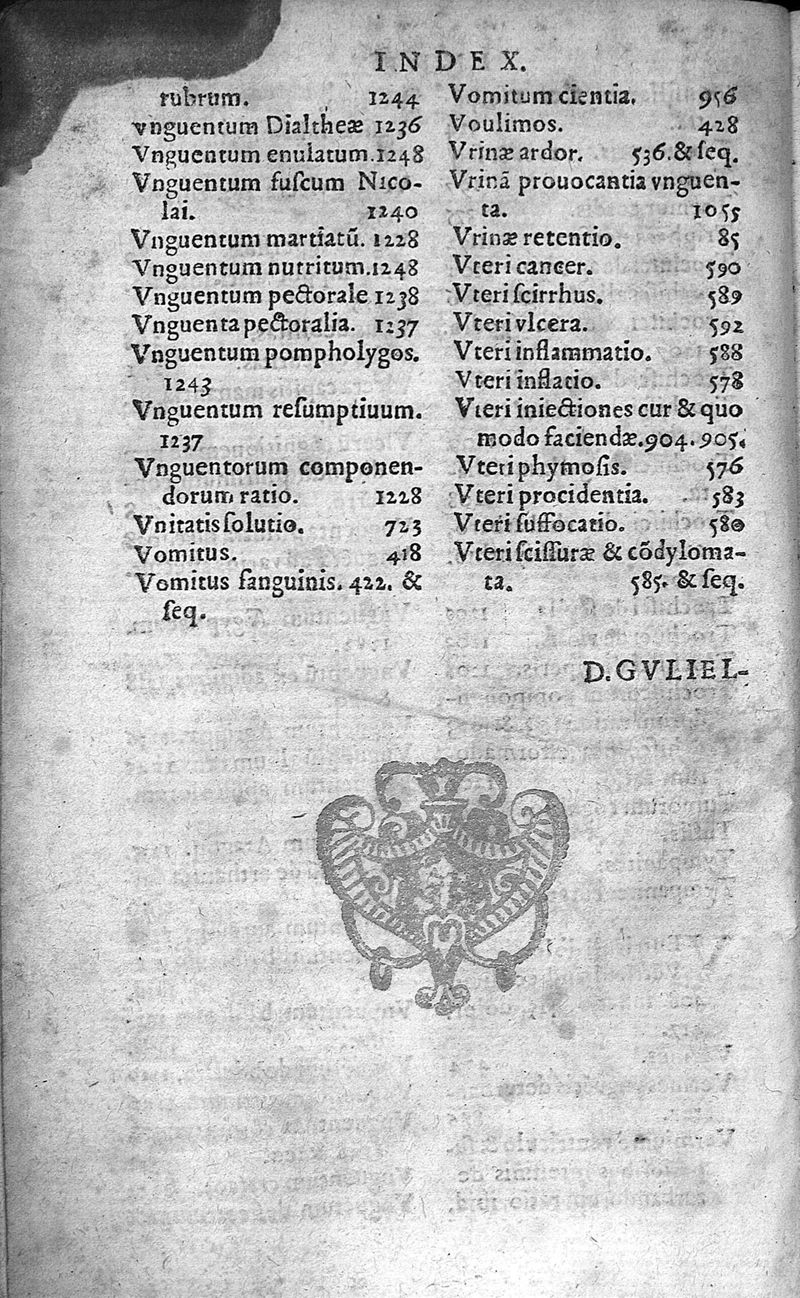 INDEX.
rubrum. 1244
vnguentum Dialtheæ 1236
Vnguentum enulatum. 1248
Vnguentum fuſcum Nico-
lai. 1240
Vnguentum martiatũ. 1228
Vnguentum nutritum. 1248
Vnguentum pectorale 1238
Vnguenta pectoralia. 1237
Vnguentum pompholygos.
1243
Vnguentum reſumptiuum.
1237
Vnguentorum componen-
dorum ratio. 1228
Vnitatis ſolutio. 723
Vomitus. 418
Vomitus ſanguinis. 422. &
ſeq.
Vomitum cientia. 956
Voulimos. 428
Vrinæ ardor. 536. & ſeq.
Vrinã prouocantia vnguen-
ta. 1055
Vrinæ retentio. 85
Vteri cancer. 590
Vteri ſcirrhus. 589
Vteri vlcera. 592
Vteri inflammatio. 588
Vteri inflatio. 578
Vteri iniectiones cur & quo
modo faciendæ. 904. 905.
Vteri phymoſis. 576
Vteri procidentia. 583
Vteri ſuffocatio. 580
Vteri ſciſſuræ & cõdyloma-
ta. 585. & ſeq.
D. GVLIEL-